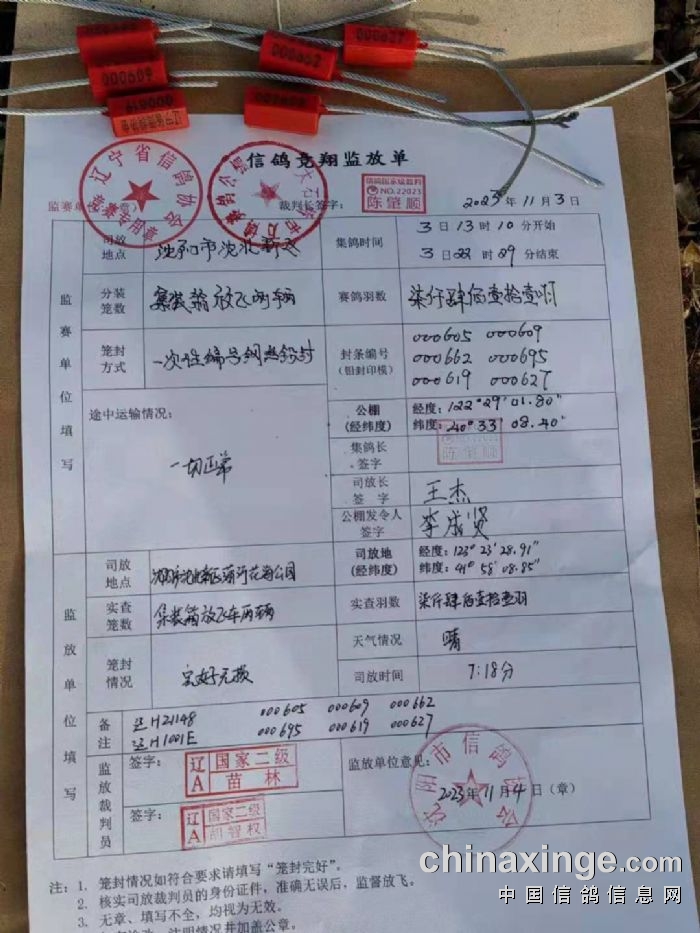 000609
000662
000627
000619
信鸽竞翔监放单
辽宁省信鸽协会
竞赛专用章
监赛单位(章)
裁判长签字:
信鸽国家级裁判
NO.22023
陈肇顺
2023年11月3日
监赛单位填写
司放地点
沈阳市沈北新区
集鸽时间
3日13时10分开始
3日22时29分结束
分装笼数
集装箱放飞两辆
赛鸽羽数
柒仟肆佰壹拾壹羽
笼封方式
一次性编号钢丝铅封
封条编号
(铅封印模)
000605 000609
000662 000695
000619 000627
途中运输情况:
一切正常
公棚
(经纬度)
经度:122°29′01.80″
纬度:40°33′08.40″
集鸽长签字
陈肇顺
司放长签字
王杰
公棚发令人签字
李成贤
监放单位填写
司放地点
沈阳市沈北新区蒲河花海公园
司放地
(经纬度)
经度:123°23′28.91″
纬度:41°58′08.85″
实查笼数
集装箱放飞车两辆
实查羽数
柒仟肆佰壹拾壹羽
笼封情况
完好无损
天气情况
晴
司放时间
7:18分
备注
辽H21148 000605 000609 000662
辽H1001E 000695 000619 000627
监放裁判员
签字:
辽A 国家二级 苗林
签字:
辽A 国家二级 胡智权
监放单位意见:
沈阳市信鸽协会
2023年11月4日(章)
注:1. 笼封情况如符合要求请填写“笼封完好”。
2. 核实司放裁判员的身份证件,准确无误后,监督放飞。
3. 无章、填写不全,均视为无效。
chinaxinge.com
中国信鸽信息网